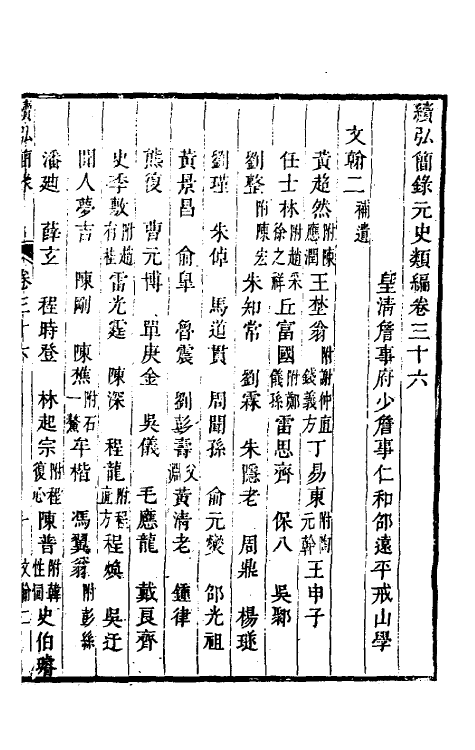 續弘簡錄元史類編卷三十六
皇清詹事府少詹事仁和邵遠平戒山學
文翰二補遺
黃超然附陳應潤王埜翁附謝仲直錢義方丁易東附陶元幹王申子
任士林附趙采徐之祥丘富國附鄭儀孫雷思齊 保八 吳鄹
劉整附陳宏朱知常 劉霖 朱隱老 周鼎 楊璲
劉瑾 朱倬 馬道貫 周聞孫 俞元燮 邵光祖
黃景昌 俞皐 魯震 劉彭壽父淵黃清老 鍾律
熊復 曹元博 單庚金 吳儀 毛應龍 戴良齊
史季敷附趙有桂雷光霆 陳深 程龍附程直方程煥 吳迂
聞人夢吉 陳剛 陳樵附石一鰲牟楷 馮翼翁附彭絲
潘迪 薛玄 程時登 林起宗附程復心陳普附韓性同史伯璿
續弘簡錄 卷三十六 文翰二